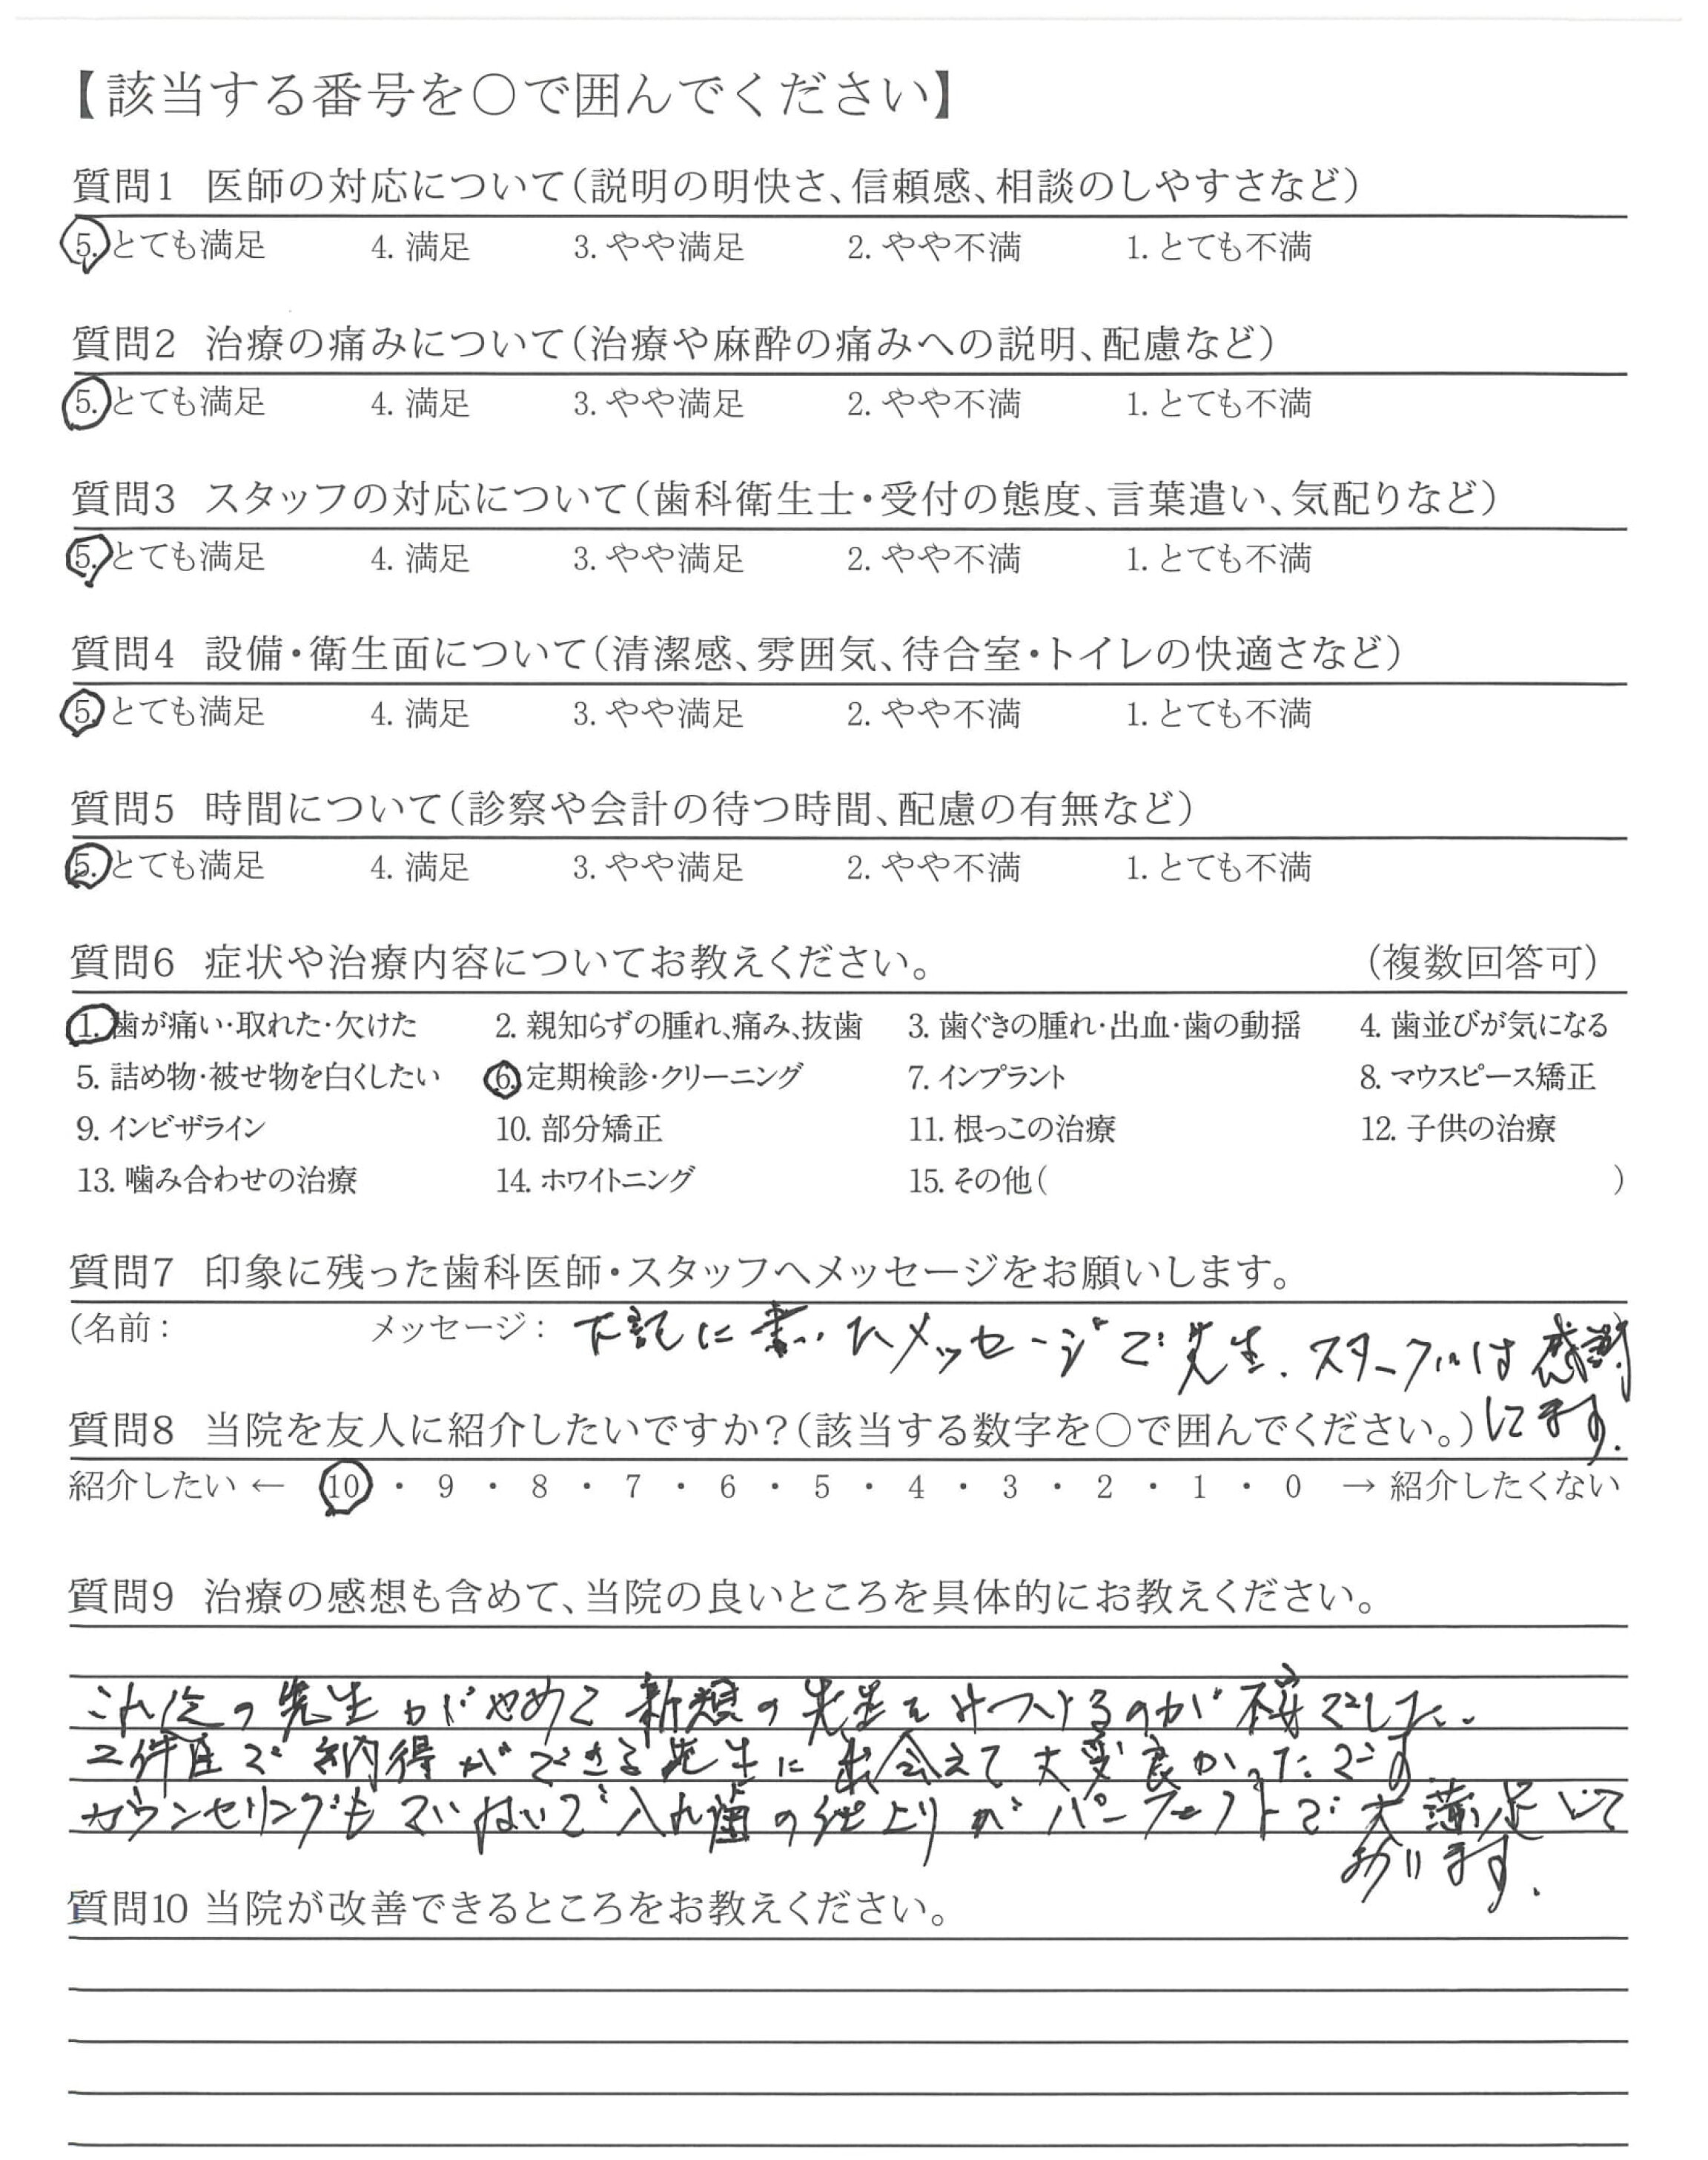 【該当する番号を○で囲んでください】
質問1 医師の対応について（説明の明快さ、信頼感、相談のしやすさなど）
5. とても満足 4. 満足 3. やや満足 2. やや不満 1. とても不満
質問2 治療の痛みについて（治療や麻酔の痛みへの説明、配慮など）
5. とても満足 4. 満足 3. やや満足 2. やや不満 1. とても不満
質問3 スタッフの対応について（歯科衛生士・受付の態度、言葉遣い、気配りなど）
5. とても満足 4. 満足 3. やや満足 2. やや不満 1. とても不満
質問4 設備・衛生面について（清潔感、雰囲気、待合室・トイレの快適さなど）
5. とても満足 4. 満足 3. やや満足 2. やや不満 1. とても不満
質問5 時間について（診察や会計の待つ時間、配慮の有無など）
5. とても満足 4. 満足 3. やや満足 2. やや不満 1. とても不満
質問6 症状や治療内容についてお教えください。 （複数回答可）
1. 歯が痛い・取れた・欠けた 2. 親知らずの腫れ、痛み、抜歯 3. 歯ぐきの腫れ・出血・歯の動揺 4. 歯並びが気になる
5. 詰め物・被せ物を白くしたい 6. 定期検診・クリーニング 7. インプラント 8. マウスピース矯正
9. インビザライン 10. 部分矯正 11. 根っこの治療 12. 子供の治療
13. 噛み合わせの治療 14. ホワイトニング 15. その他（ ）
質問7 印象に残った歯科医師・スタッフへメッセージをお願いします。
（名前： メッセージ： 下記に書いたメッセージで先生、スタッフには感謝
してます.
質問8 当院を友人に紹介したいですか？（該当する数字を○で囲んでください。）
紹介したい ← 10 ・ 9 ・ 8 ・ 7 ・ 6 ・ 5 ・ 4 ・ 3 ・ 2 ・ 1 ・ 0 → 紹介したくない
質問9 治療の感想も含めて、当院の良いところを具体的にお教えください。
の先生がやめて新規の先生を見つけるのが不安でした。
二件目で納得ができる先生に出会えて大変良かったです
カウンセリングもていねいで入れ歯の仕上りがパーフェクトで大満足して
おります.
質問10 当院が改善できるところをお教えください。